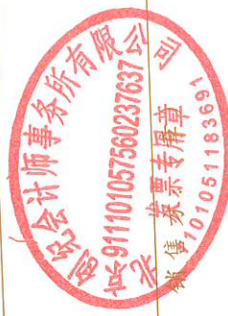 北京创纪会计师事务所有限公司
911101057560237637
发票专用章
1101051183691